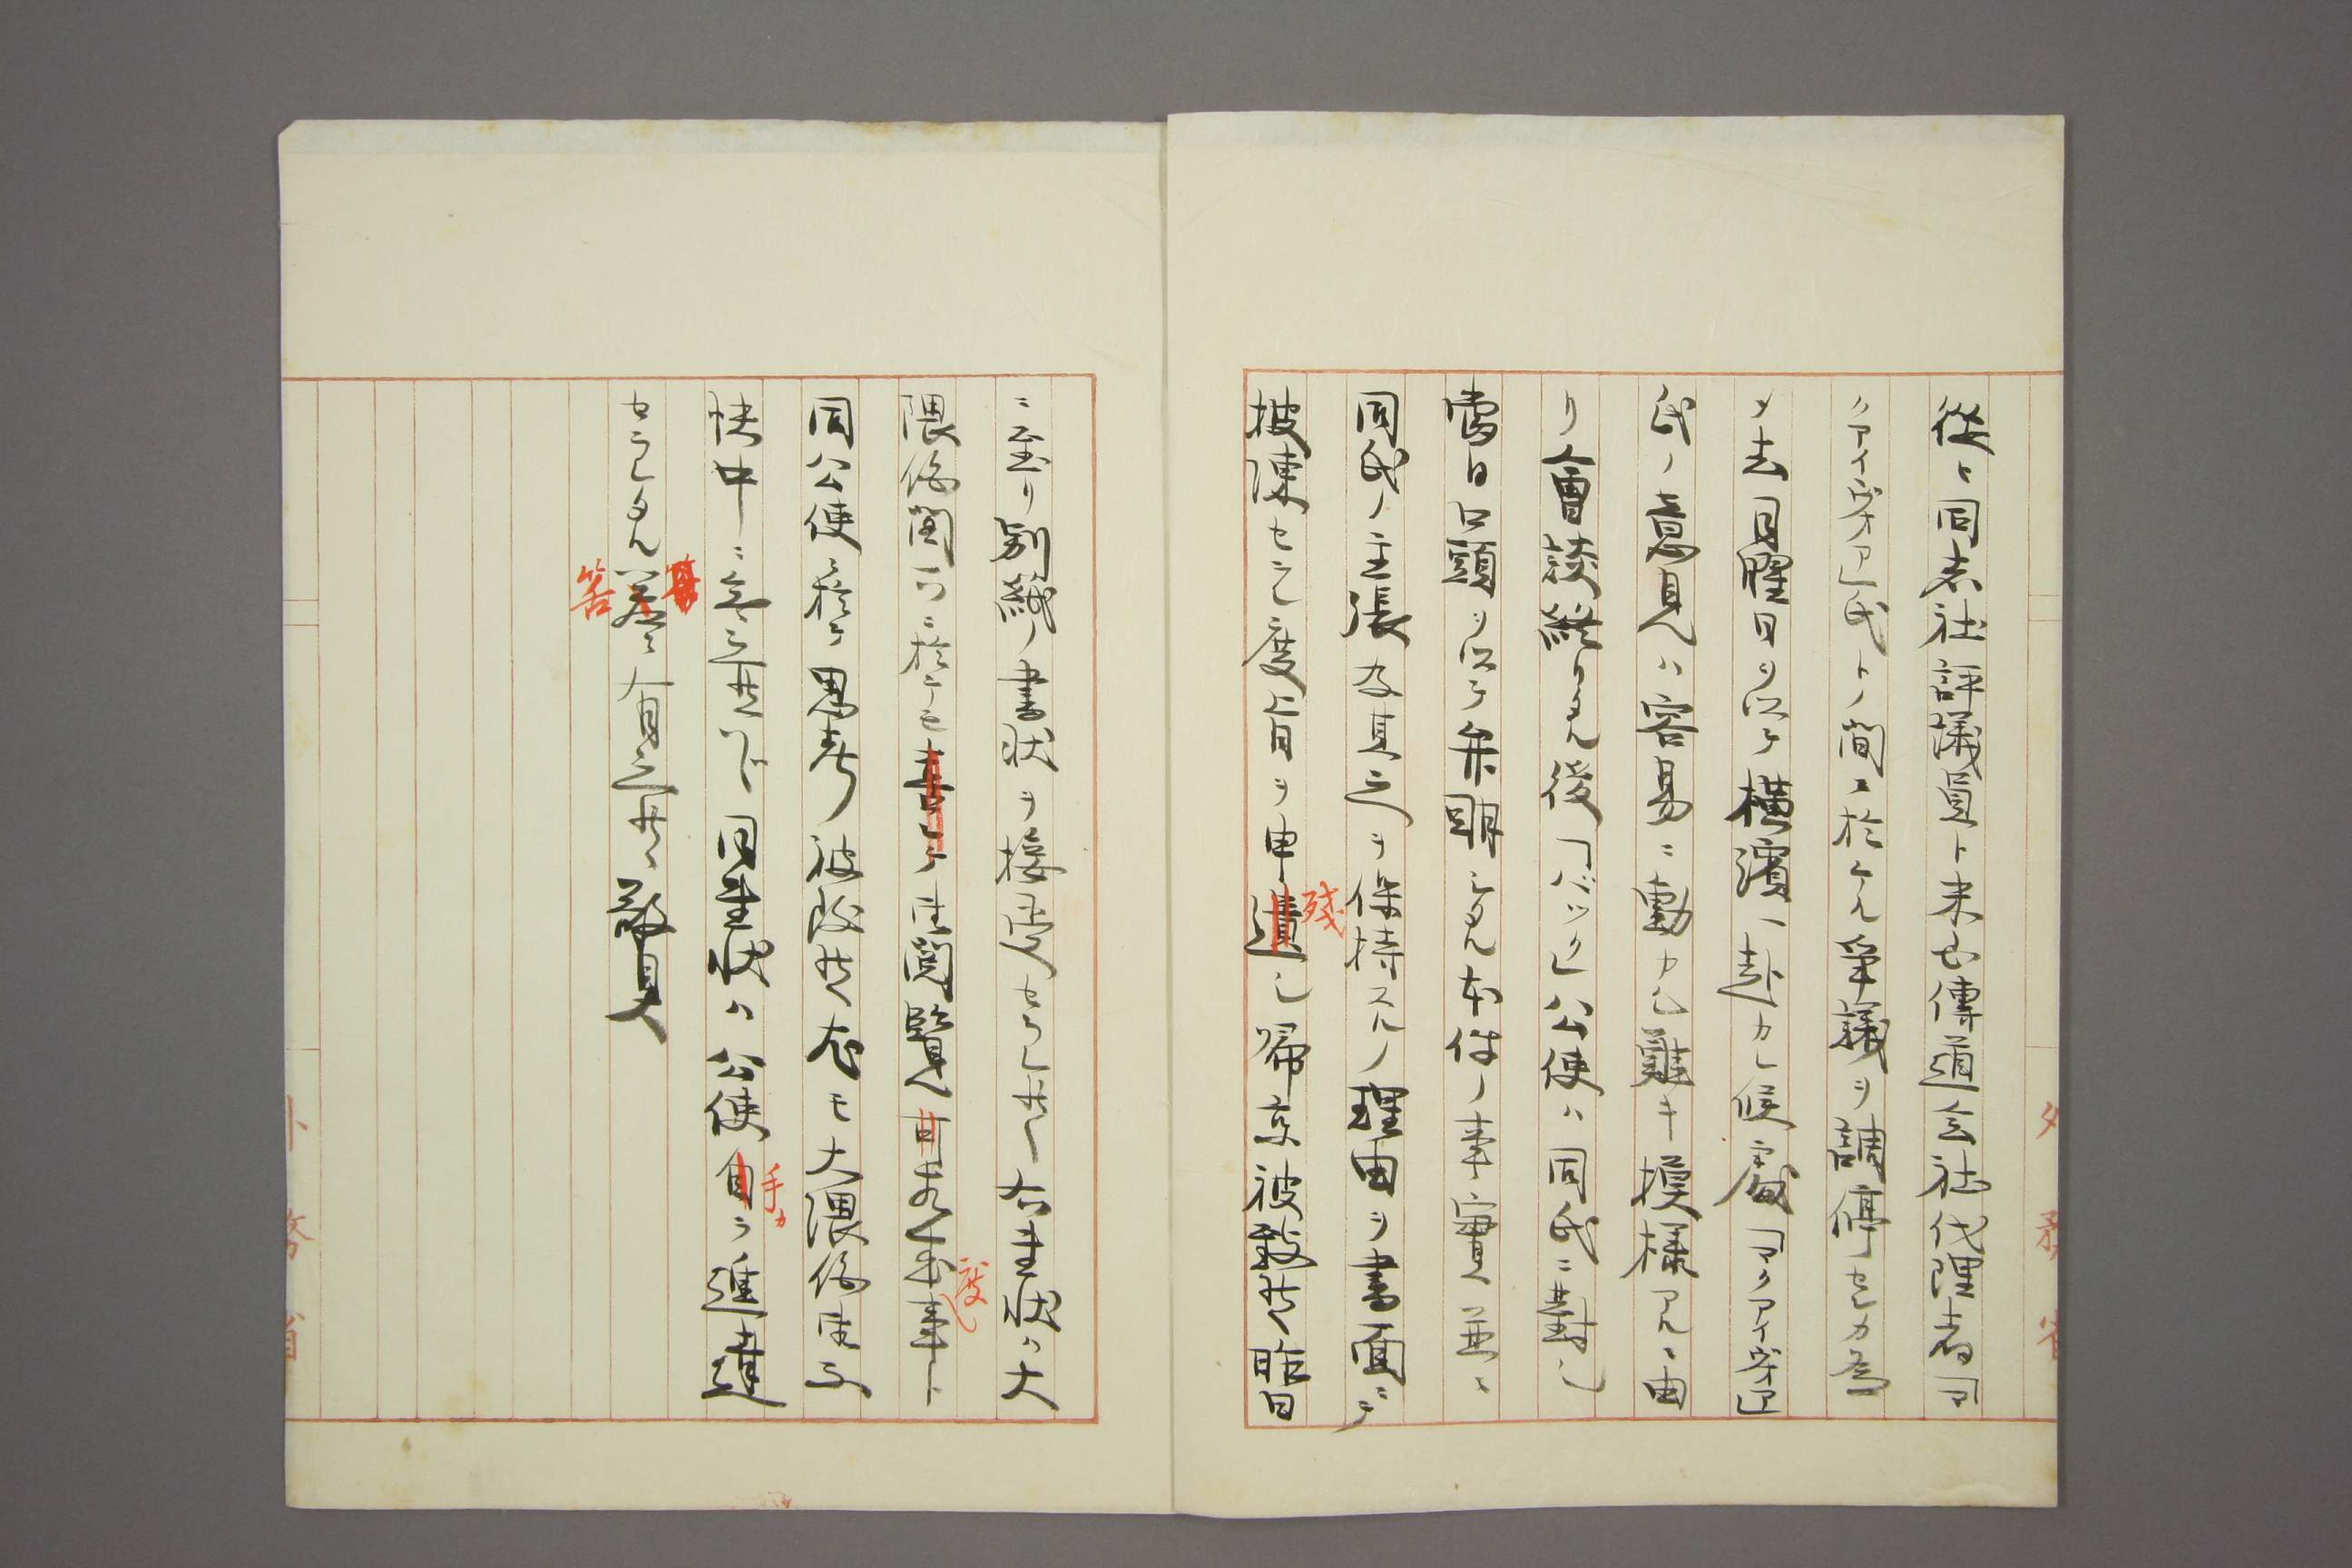 従ヒ同志社評議員ト米國傳道会社代理者「マ
クアイヴオア」氏トノ間ニ於ケル争議ヲ調停センカ為
メ去日曜日ヲ以テ横濱ヘ赴カレ候處「マクアイヴオア」
氏ノ意見ハ容易ニ動カシ難キ模様アルニ由
リ會談終リタル後「バック」公使ハ同氏ニ對シ
當日口頭ヲ以テ弁明シタル本件ノ事實並ニ
同氏ノ主張及其之ヲ保持スルノ理由ヲ書面ニテ
披陳セラレ度旨ヲ申遺シ帰京被致候昨日
残
ニ至リ別紙ノ書状ヲ接受セラレ候右書状ハ大
隈伯閣下ニ於テモ喜ンテ御閲覧可相成事ト
度
同公使ニ於テ思考被致候尤モ大隈伯御不
快中ニ有之候ハヾ同書状ハ公使自ラ進達
手カ
セラルヽ筈ニ有之候敬具
筈
外務省
外務省